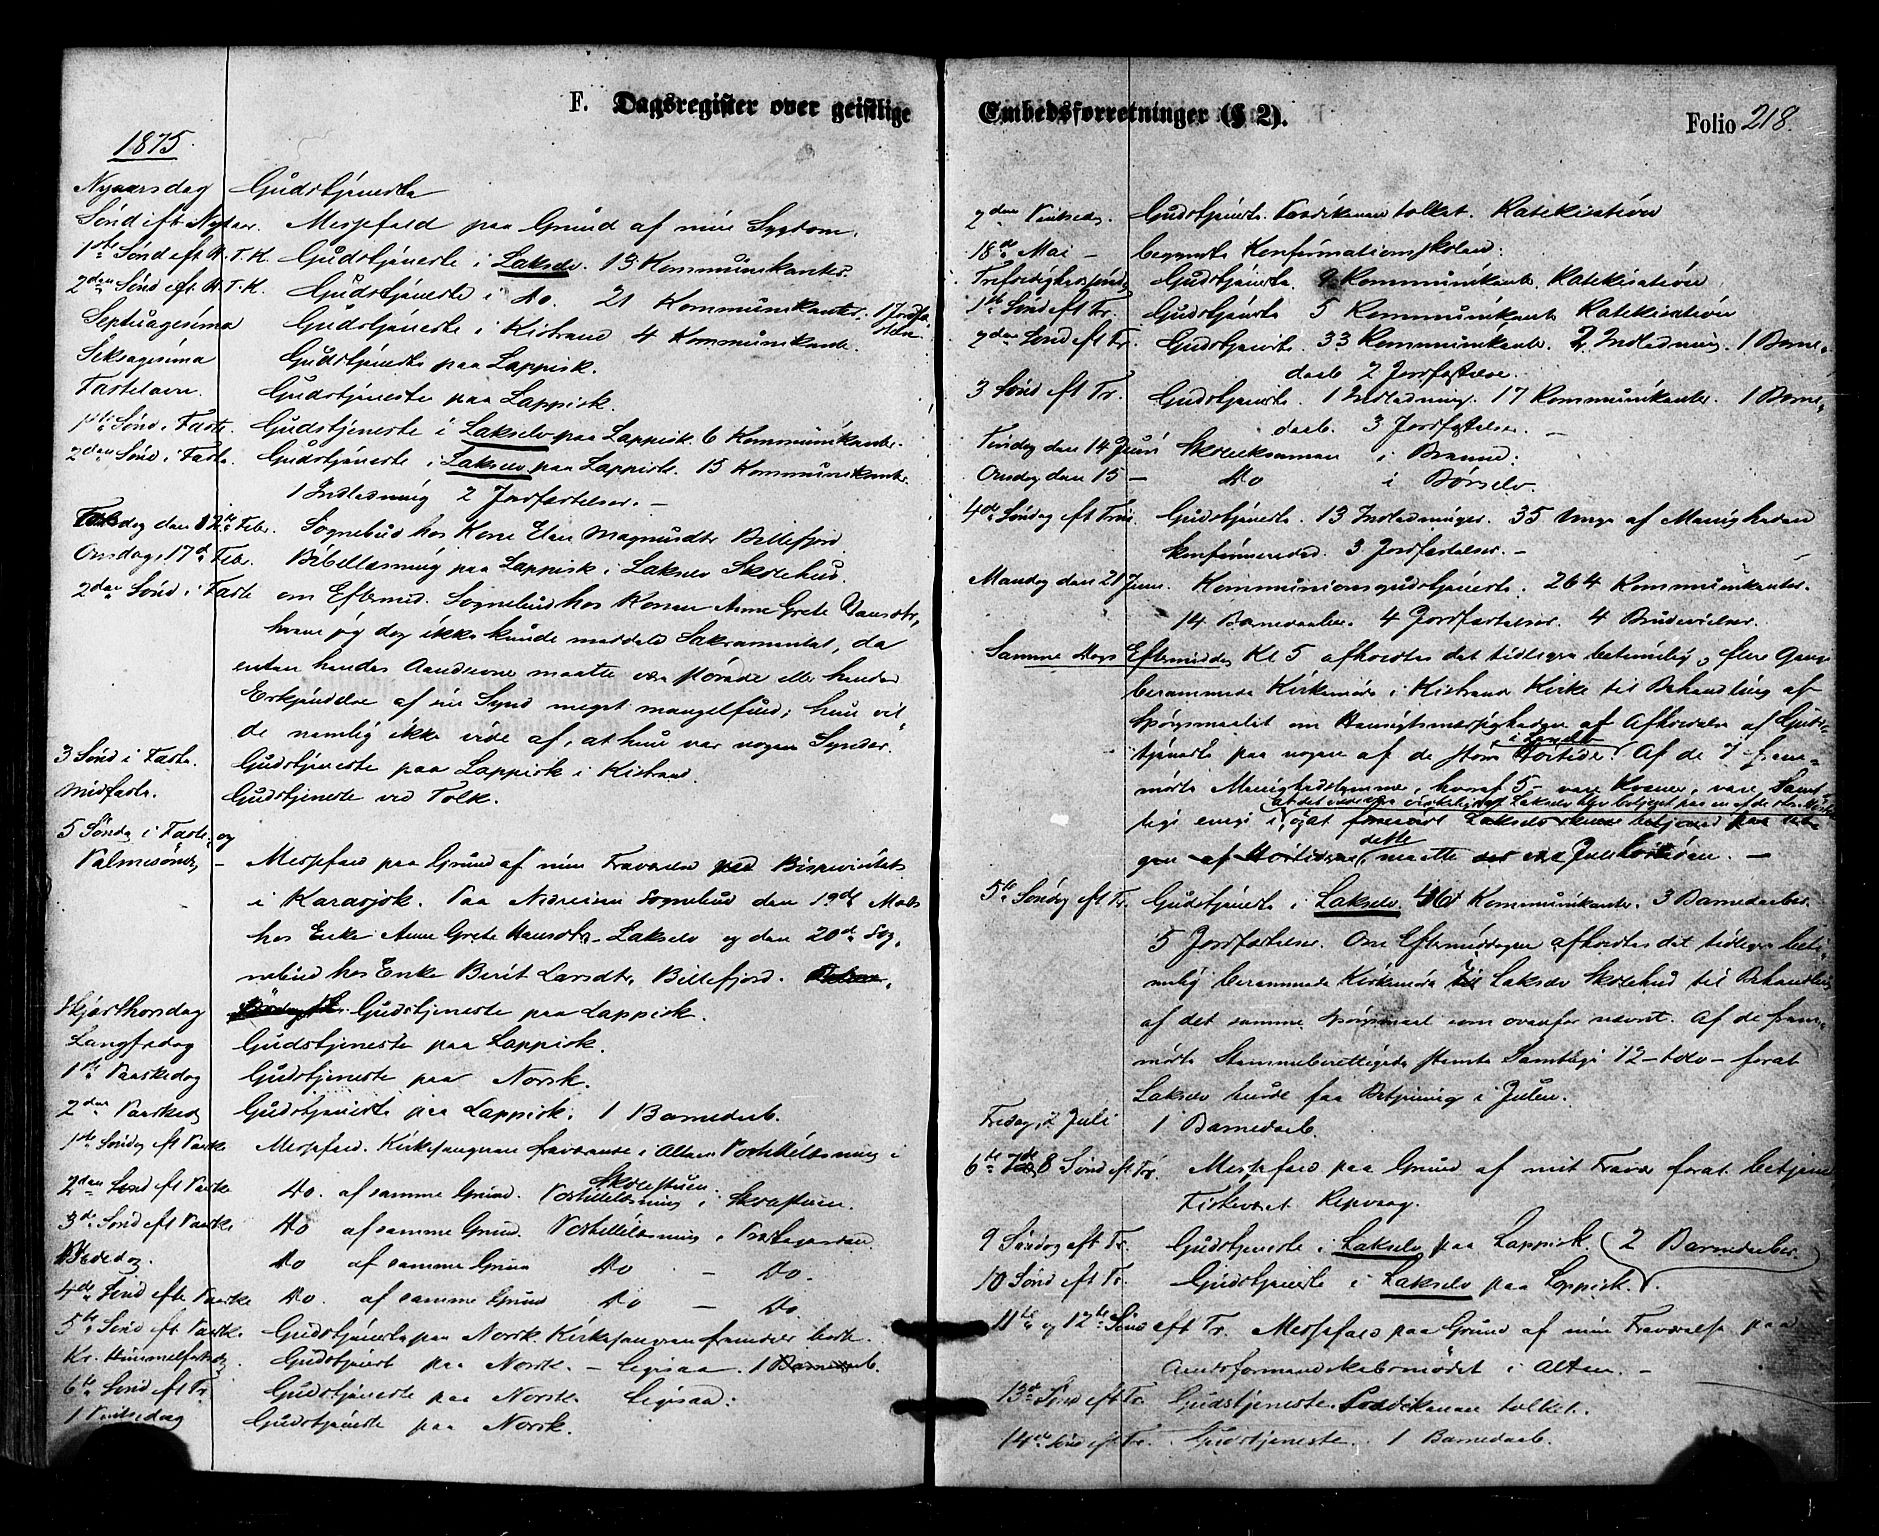 F. Dagsregister over geistlige
1875
Nyaarsdag Gudstjeneste
Sønd eft. Nytaar. Messefald paa Grund af min Sygdom.
1ste Sønd eft H. T. K. Gudstjeneste i Lakselv. 13 Kommunikanter.
2den Sønd eft H. T. K. Gudstjeneste i Do. 21 Kommunikanter. 1 Jordfæstelse
Septuagesima Gudstjeneste i Kistrand 4 Kommunikanter.
Seksagesima Gudstjeneste paa Lappisk.
Fastelavn. Gudstjeneste paa Lappisk.
1ste Sønd i Faste. Gudstjeneste i Lakselv paa Lappisk. 6 Kommunikanter.
2den Sønd i Faste. Gudstjeneste i Lakselv paa Lappisk. 15 Kommunikanter.
1 Indledning 2 Jordfæstelser. –
dag den 12te Febr. Sognebud hos Kone Elen Magnusdtr Billefjord.
Onsdag 17de Febr. Bibellæsning paa Lappisk i Lakselv Skolehus.
2den Sønd i Faste om Eftermid. Sognebud hos Konen Anne Grete Hansdtr,
hvem jeg dog ikke kunde meddele Sakramentet, da
enten hendes Aandsevne maatte være sløvede eller hendes
Erkjendelse af sin Synd meget mangelfuld; hun vil-
de nemlig ikke vide af, at hun var nogen Synder.
3 Sønd i Faste. Gudstjeneste paa Lappisk i Kistrand.
Midfaste. Gudstjeneste ved Tolk.
5 Søndag i Faste og
Palmesøndag – Messefald paa Grund af min Fraværelse ved Bispevisitats
i Karasjok. Paa Nedreisen Sognebud den 19de Mats
hos Enke Anne Grete Hansdtr Lakselv og den 20de Sog-
nebud hos Enke Berit Larsdtr, Billefjord.
Skjærthorsdag Gudstjeneste paa Lappisk.
Langfredag Gudstjeneste paa Lappisk.
1ste Paaskedag Gudstjeneste paa Norsk.
2den Paaskedag Gudstjeneste paa Lappisk. 1 Barnedaab.
1ste Søndag eft Paaske Messefald. Kirkesangeren fraværende i Alten. Postillelæsning i
Skolestuen.
2den Sønd eft Paaske Do. af samme Grund. Postillelæsning i Skolestuen.
3de Sønd eft Paaske Do af samme Grund. Postillelæsning i Prestegaarden.
Bededag. Do af samme Grund Do – Do.
4de Sønd efter Paaske Do. af samme Grund Do – Do
5te Sønd eft Paaske Gudstjeneste paa Norsk. Kirkesangeren fremdeles borte.
Kr. Himmelfartsdag. Gudstjenest paa Norsk. – Ligesaa. 1 Barnedaab.
6te Sønd eft Gudstjeneste paa Norsk Ligesaa.
1 Pintsedag Gudstjeneste paa Norsk.
Embedsforretninger (§ 2).
Folio 218.
2den Pintsedag. Gudstjeneste. tolket. Katekisation
18de Mai – begyndte Konfirmationsskolen.
Trefoldighedssøndag Gudstjeneste. 9 Kommunikanter. Katekisation
1ste Sønd eft Tr. Gudstjeneste 5 Kommunikanter Katekisation
2den Sønd eft Tr. Gudstjeneste. 33 Kommunikanter. 2 Indledning. 1 Barne-
daab 2 Jordfæstelser.
3 Sønd eft Tr. Gudstjeneste. 1 Indledning. 17 Kommunikanter. 1 Barne-
daab. 3 Jordfæstelser. –
Tirsdag den 14 Juni Skoleeksamen i Brenna.
Onsdag den 15 – Do i Børselv.
4de Søndag eft Trin. Gudstjeneste. 13 Indledninger. 35 Unge af Menigheden
konfirmerede. 3 Jordfæstelser. –
Mandag den 21 Juni. Kommunionsgudstjeneste. 264 Kommunikanter.
14 Barnedaaber. 4 Jordfæstelser. 4 Brudevielser.
Samme Dags Eftermiddag Kl 5 afholdtes det tidligere betimelig, flere Gange
berammede Kirkemøde i Kistrand Kirke til Behandling af
Spørgsmaalet om Hensigtsmessigheden af Afholdelse af Guds-
tjeneste paa nogen af de store Høitider i Lakselv. Af de 7 frem-
mødte Menighedslemmer, hvoraf 5 – vare Kvæner, vare Samt-
lige enige i, at
dette maatte Julehøitiden. –
5te Søndag eft Tr. Gudstjeneste i Lakselv. 46 Kommunikanter. 3 Barnedaaber.
5 Jordfæstelser. Om Eftermiddagen afholdtes det tidligere beti-
melig berammede Kirkemøde i Lakselv Skolehus til Behandling
af det samme Spørgsmaal som ovenfor nævnt. Af de frem-
mødte Stemmeberettigede stemte Samtlige 12 – tolv – for at
Lakselv burde faa Betjening i Julen.
Fredag, 2 Juli 1 Barnedaab.
6te 7de 8 Sønd eft Tr. Messefald paa Grund af mit Fravær for at betjene
Fiskeværet Repvaag.
9 Søndag eft Tr. Gudstjeneste i Lakselv paa Lappisk (2 Barnedaaber.
10 Sønd eft Tr. Gudstjeneste i Lakselv paa Lappisk.
11te og 12te Sønd eft Tr. Messefald paa Grund af min Fraværelse paa
Amtsformandskabsmødet i Alten. –
13de Sønd eft Tr. Gudstjeneste. tolket.
14de Sønd eft Tr. Gudstjeneste. 1 Barnedaab.